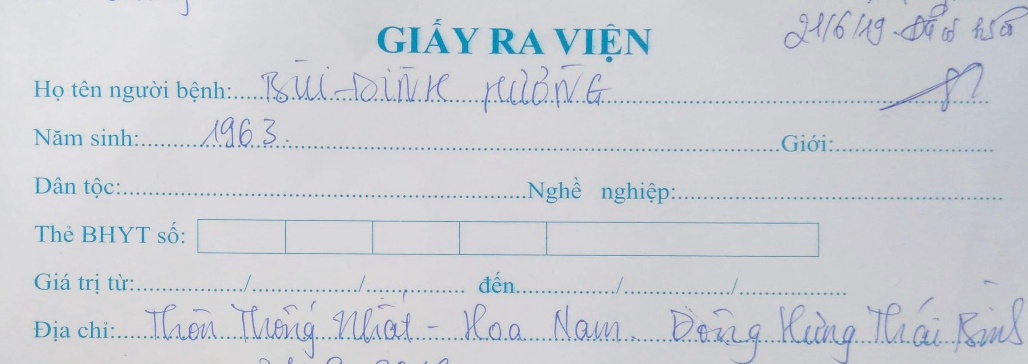 GIẤY RA VIỆN
21/6/19
Họ tên người bệnh: BÙI ĐÌNH HƯỞNG
Năm sinh: 1963. Giới:
Dân tộc: Nghề nghiệp:
Thẻ BHYT số:
Giá trị từ: / / đến / /
Địa chỉ: Thôn Thống Nhất - Hoa Nam. Đông Hưng Thái Bình